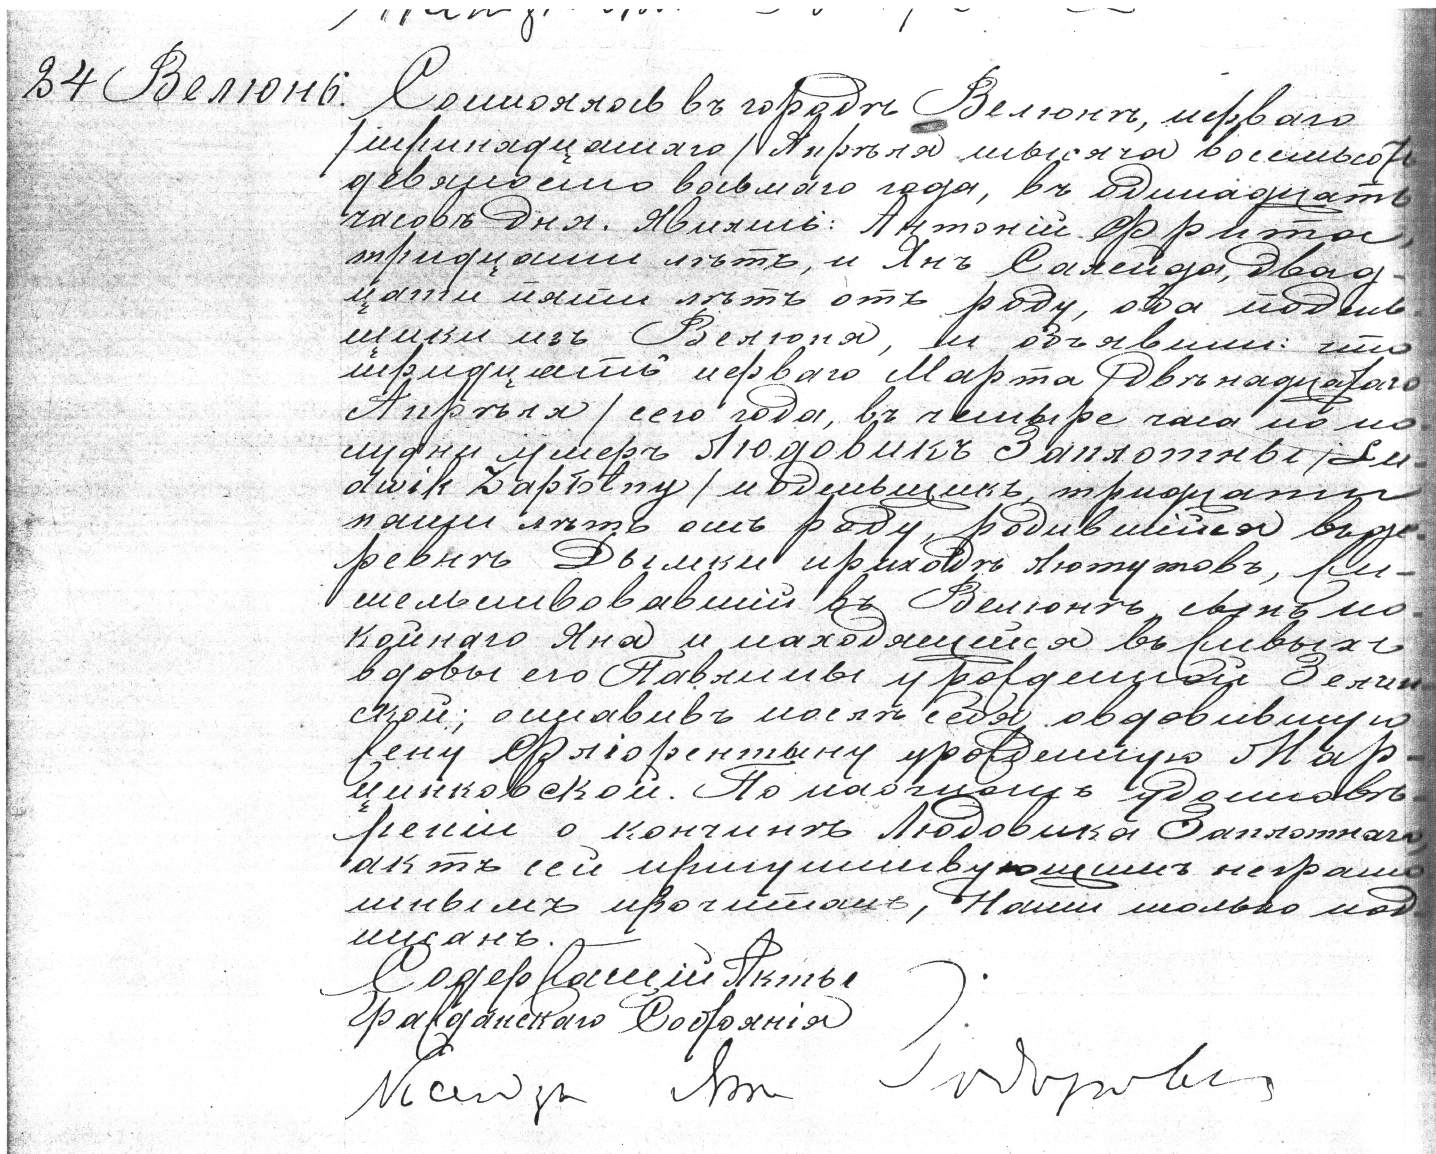 34 Велюнь. Состоялось въ городѣ Велюнѣ, перваго
/тринадцатаго/ Апрѣля тысяча восемьсотъ
девяносто восьмаго года, въ одинадцать
часовъ дня. Явились: Антоній Фрыта,
тридцати лѣтъ, и Янъ Саленда, двад-
цати пяти лѣтъ отъ роду, оба поден-
щики изъ Велюня, и объявили: что
тридцать перваго Марта /двѣнадцатаго
Апрѣля/ сего года, въ четыре часа по по-
лудни умеръ Людовикъ Заплотны /Lu-
dwik Zapłotny/ поденьщикъ, тридцати
пяти лѣтъ отъ роду, родившійся въ де-
ревнѣ Дымки приходѣ Лютутовъ, жи-
тельствовавшій въ Велюнѣ, сынъ по-
койнаго Яна и находящейся въ живыхъ
вдовы его Павлины урожденной Зелин-
ской; оставивъ послѣ себя овдовившую
жену Флёрентыну урожденную Мар-
цинковской. По наочномъ удостовѣ-
реніи о кончинѣ Людовика Заплотнаго,
актъ сей присутствующимъ неграмо
тнымъ прочитанъ, Нами только под-
писанъ.
Содержащій Акты
Гражданскаго Состоянія
Ксендзъ Янъ